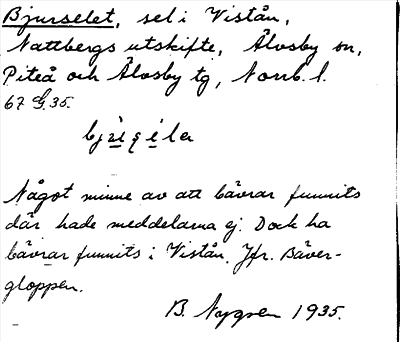 Bjurselet, sel i Vistån,
Nattbergs utskifte, Älvsby sn,
Piteå och Älvsby tg, Norrb. l.
67 G. 35.
Något minne av att bävrar funnits
där hade meddelarna ej. Dock ha
bävrar funnits i Vistån. Jfr. Bäver-
gloppen.
B. Nygren 1935.